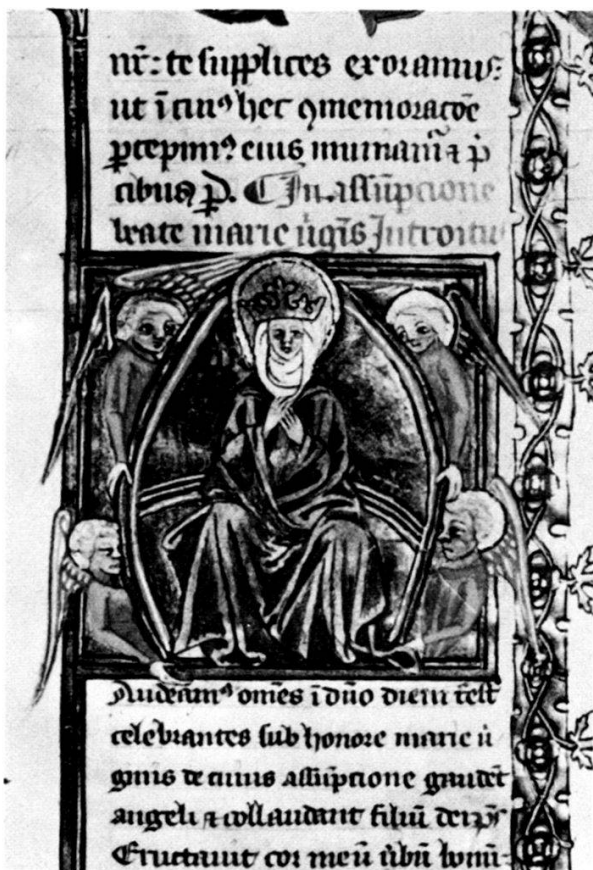 nr̃: te supplices exoramus:
ut ĩ cuiꝰ hec ꝯmemoracõe
ꝑcepimꝰ eius muniam̃ ⁊ p̃
cibus ꝑ. ¶ In assũpcione
beate marie ũgĩs Introitus
Audeamꝰ om̃es ĩ dño diem fest̃
celebrantes sub honore marie ũ
ginis de cuius assũpcione gaudẽt
angeli ⁊ collaudant filiũ dei. p̃s
Eructauit cor meũ ũbũ bonũ: